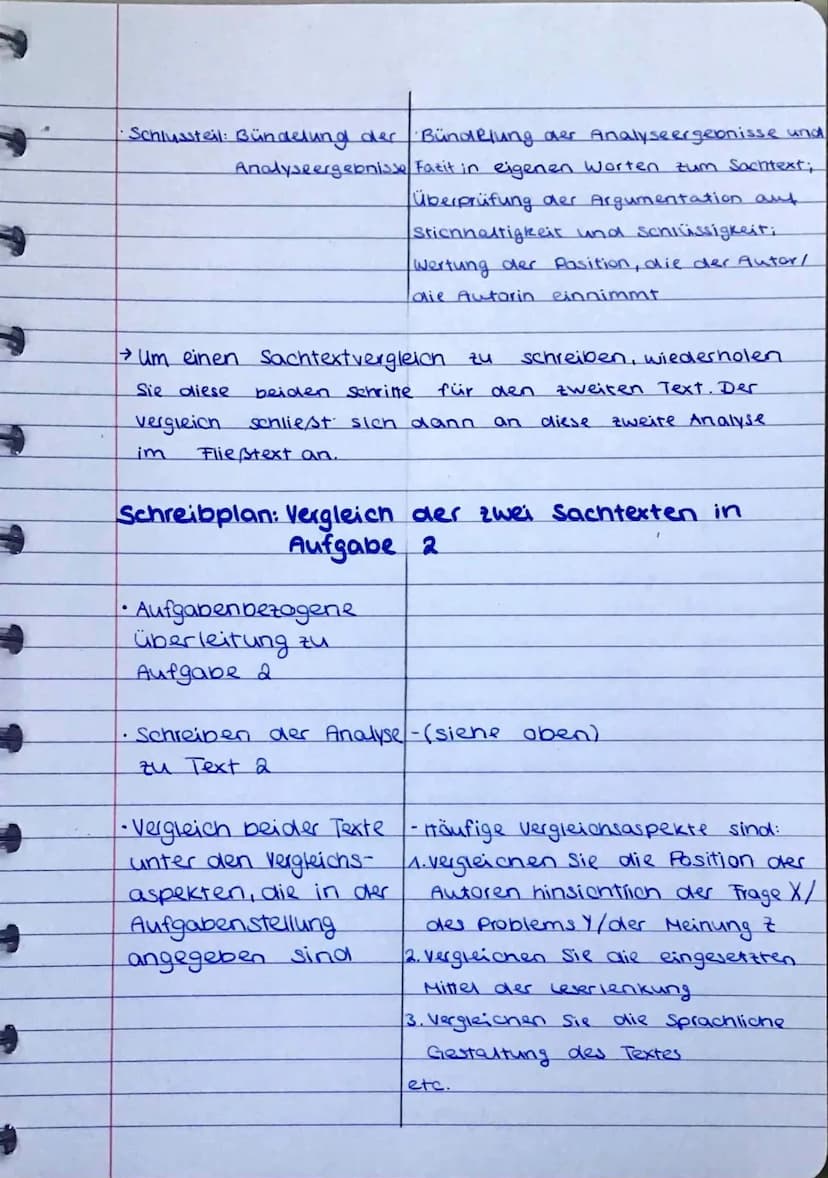 · Schlussteil: Bündelung der
Analyseergebnisse
· Bündelung der Analyseergebnisse und
Fazit in eigenen Worten zum Sachtext;
Überprüfung der Argumentation auf
Stichhaltigkeit und Schlüssigkeit;
Wertung der Position, die der Autor/
die Autorin einnimmt
→ Um einen Sachtextvergleich zu schreiben, wiederholen
Sie diese beiden Schritte für den zweiten Text. Der
Vergleich schließt sich dann an diese zweite Analyse
im Fließtext an.
Schreibplan: Vergleich der zwei Sachtexten in
Aufgabe 2
· Aufgabenbezogene
Überleitung zu
Aufgabe 2
· Schreiben der Analyse
zu Text 2
- (siehe oben)
· Vergleich beider Texte
unter den Vergleichs-
aspekten, die in der
Aufgabenstellung
angegeben sind
- Häufige Vergleichsaspekte sind:
1. Vergleichen Sie die Position der
Autoren hinsichtlich der Frage X/
des Problems Y/der Meinung Z
2. Vergleichen Sie die eingesetzten
Mittel der Leserlenkung
3. Vergleichen Sie die Sprachliche
Gestaltung des Textes
etc.